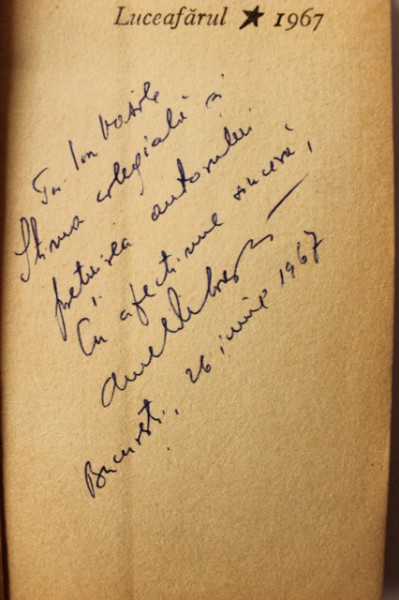 Luceafărul ★ 1967
Ion Vasile
Stima colegială și
prețuirea autorului
Cu afecțiune sinceră,
București, 26 iunie 1967